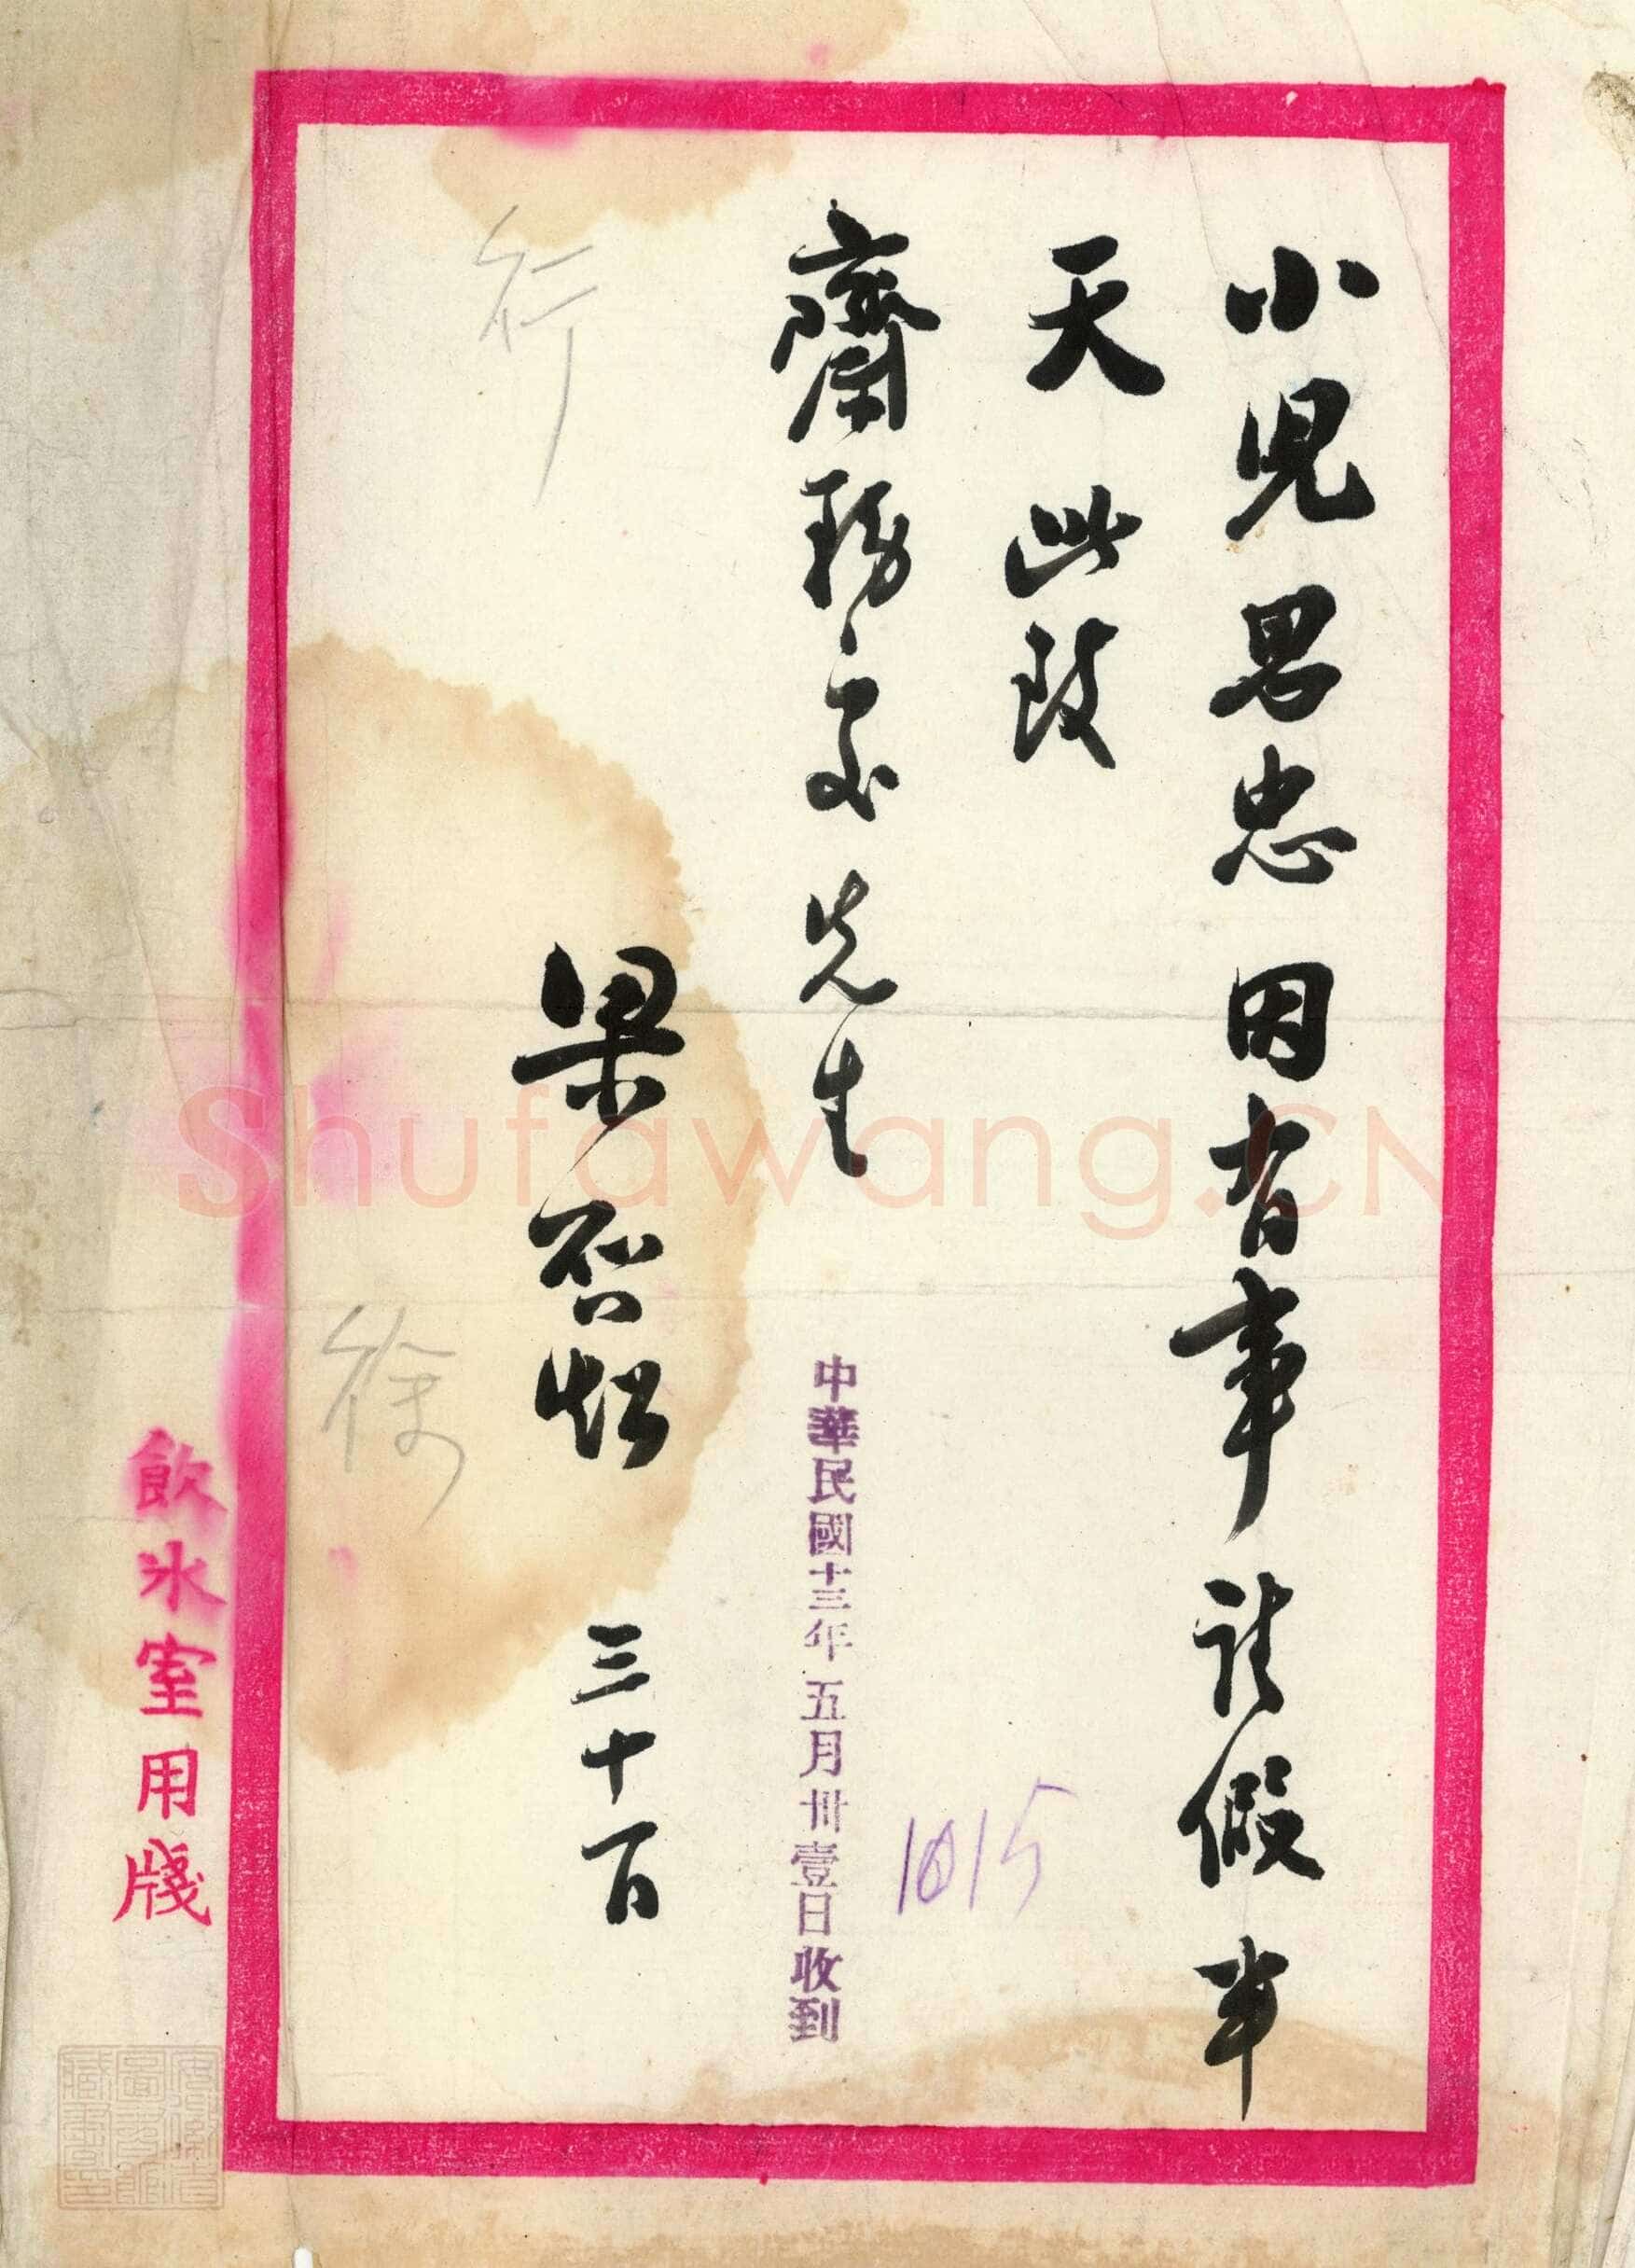 小兒思忠因有事請假半
天此致
齋務處先生
梁啟超 三十一日
中華民國十三年五月卅壹日收到
1015
行
徐
飲氷室用牋
Shufawang.CN